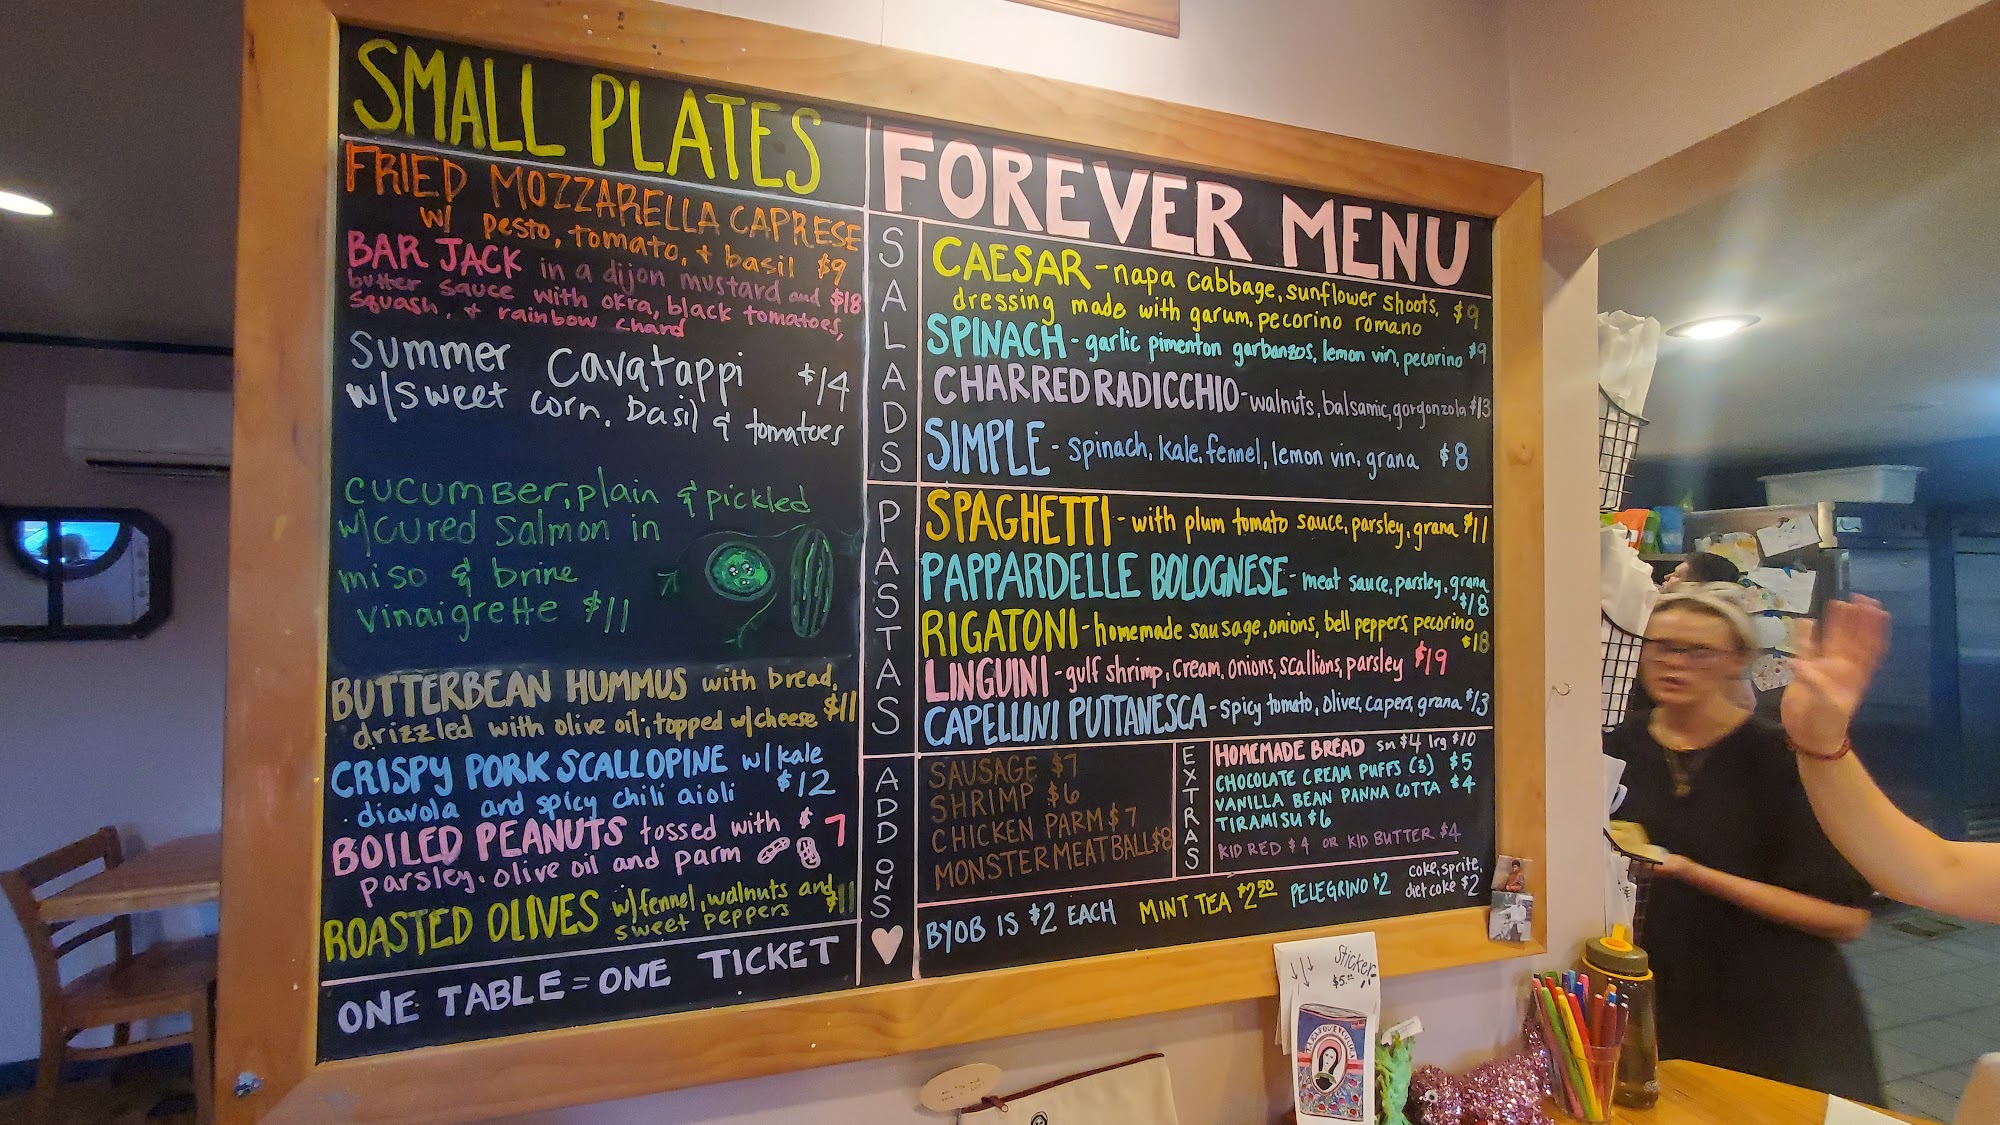 SMALL PLATES
FRIED MOZZARELLA CAPRESE
w/ pesto, tomato, + basil $9
BAR JACK in a dijon mustard and $18
butter sauce with okra, black tomatoes,
squash, + rainbow chard
Summer Cavatappi $14
w/sweet corn, basil & tomatoes
cucumber, plain & pickled
w/cured salmon in
miso & brine
vinaigrette $11
BUTTERBEAN HUMMUS with bread,
drizzled with olive oil; topped w/cheese $11
CRISPY PORK SCALLOPINE w/kale
diavola and spicy chili aioli $12
BOILED PEANUTS tossed with $7
parsley, olive oil and parm
ROASTED OLIVES w/fennel, walnuts and $11
sweet peppers
ONE TABLE = ONE TICKET
FOREVER MENU
SALADS
CAESAR - napa cabbage, sunflower shoots, $9
dressing made with garum, pecorino romano
SPINACH - garlic pimenton garbanzos, lemon vin, pecorino $9
CHARRED RADICCHIO - walnuts, balsamic, gorgonzola $13
SIMPLE - spinach, kale, fennel, lemon vin, grana $8
PASTAS
SPAGHETTI - with plum tomato sauce, parsley, grana $11
PAPPARDELLE BOLOGNESE - meat sauce, parsley, grana
$18
RIGATONI - homemade sausage, onions, bell peppers, pecorino
$18
LINGUINI - gulf shrimp, cream, onions, scallions, parsley $19
CAPELLINI PUTTANESCA - spicy tomato, olives, capers, grana $13
ADD ONS
SAUSAGE $7
SHRIMP $6
CHICKEN PARM $7
MONSTER MEATBALL $8
EXTRAS
HOMEMADE BREAD sm $4 lrg $10
CHOCOLATE CREAM PUFFS (3) $5
VANILLA BEAN PANNA COTTA $4
TIRAMISU $6
KID RED $4 OR KID BUTTER $4
BYOB IS $2 EACH MINT TEA $2.50 PELEGRINO $2 coke, sprite,
diet coke $2
Sticker
$5.00